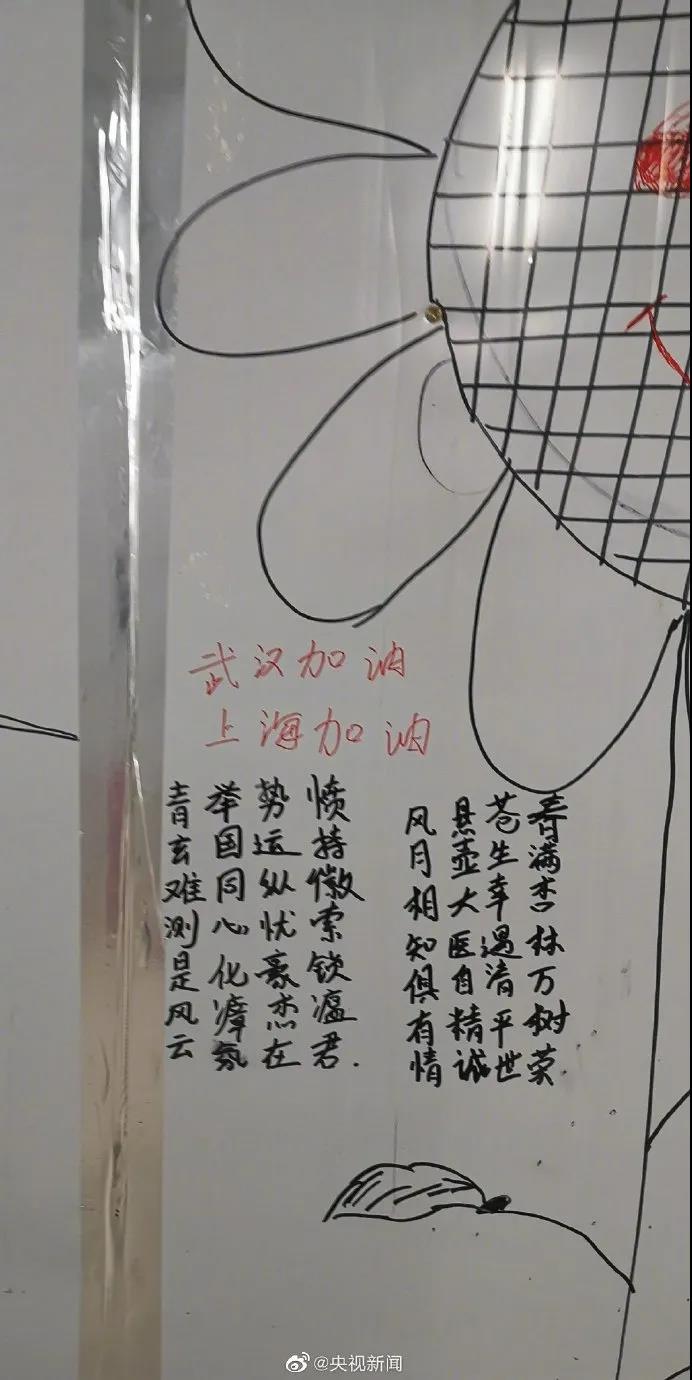 武汉加油
上海加油
青玄难测是风云
举国同心化瘴氛
势运纵忧豪杰在
愤持徽索锁瘟君.
风月相知俱有情
悬壶大医自精诚
苍生幸遇清平世
春满杏林万树荣
@央视新闻